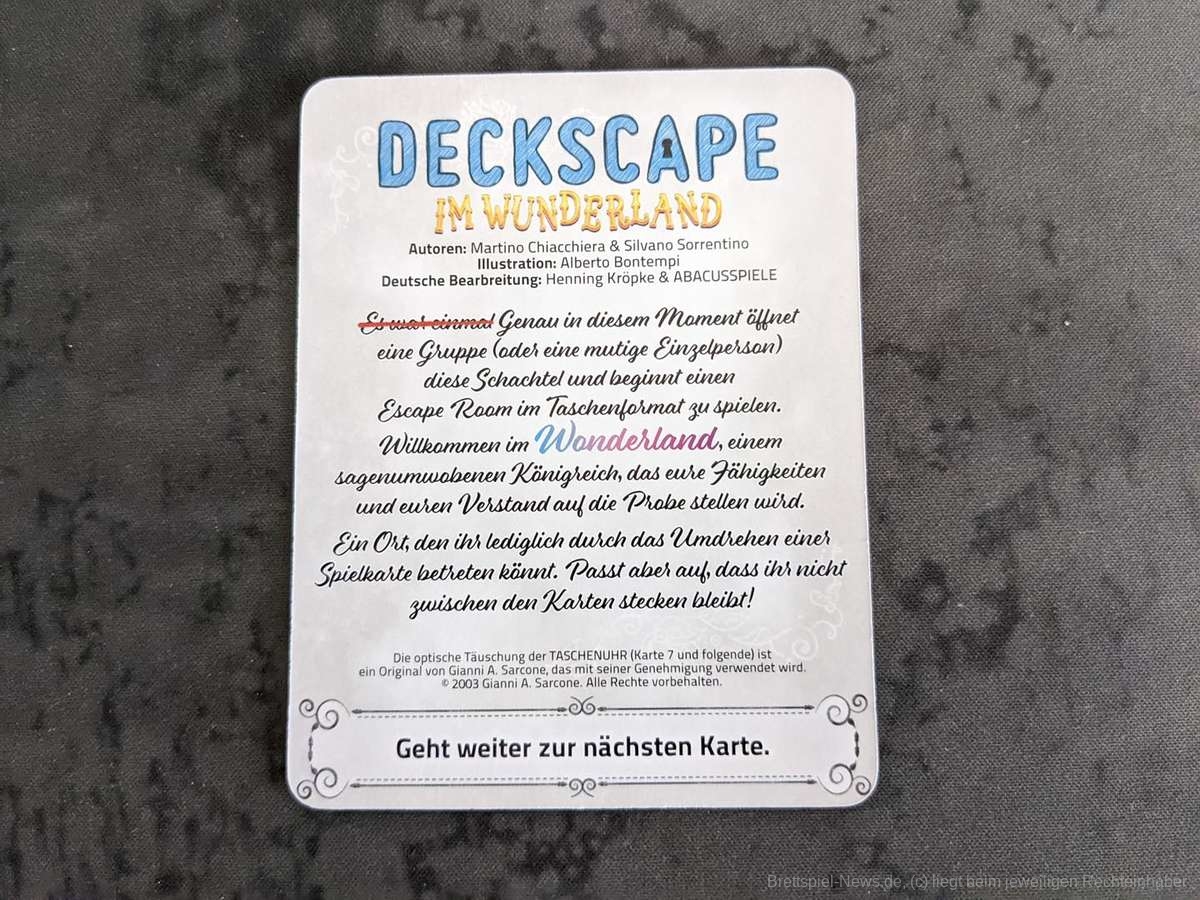 DECKSCAPE
IM WUNDERLAND
Autoren: Martino Chiacchiera & Silvano Sorrentino
Illustration: Alberto Bontempi
Deutsche Bearbreitung: Henning Kröpke & ABACUSSPIELE
Es war einmal Genau in diesem Moment öffnet
eine Gruppe (oder eine mutige Einzelperson)
diese Schachtel und beginnt einen
Escape Room im Taschenformat zu spielen.
Willkommen im Wonderland, einem
sagenumwobenen Königreich, das eure Fähigkeiten
und euren Verstand auf die Probe stellen wird.
Ein Ort, den ihr lediglich durch das Umdrehen einer
Spielkarte betreten könnt. Passt aber auf, dass ihr nicht
zwischen den Karten stecken bleibt!
Die optische Täuschung der TASCHENUHR (Karte 7 und folgende) ist
ein Original von Gianni A. Sarcone, das mit seiner Genehmigung verwendet wird.
© 2003 Gianni A. Sarcone. Alle Rechte vorbehalten.
Geht weiter zur nächsten Karte.
Brettspiel-News.de, (c) liegt beim jeweiligen Rechteinhaber